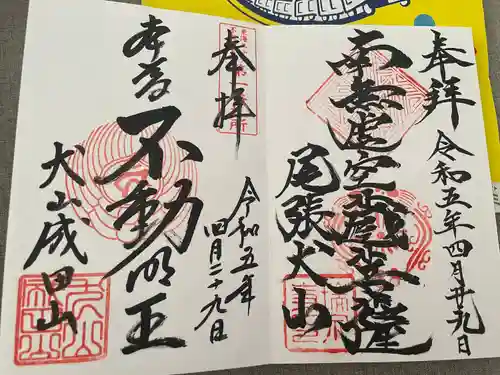 奉拝
令和五年四月廿九日
南無虚空蔵菩薩
尾張犬山
奉拝
令和五年
四月二十九日
本尊
不動明王
犬山成田山